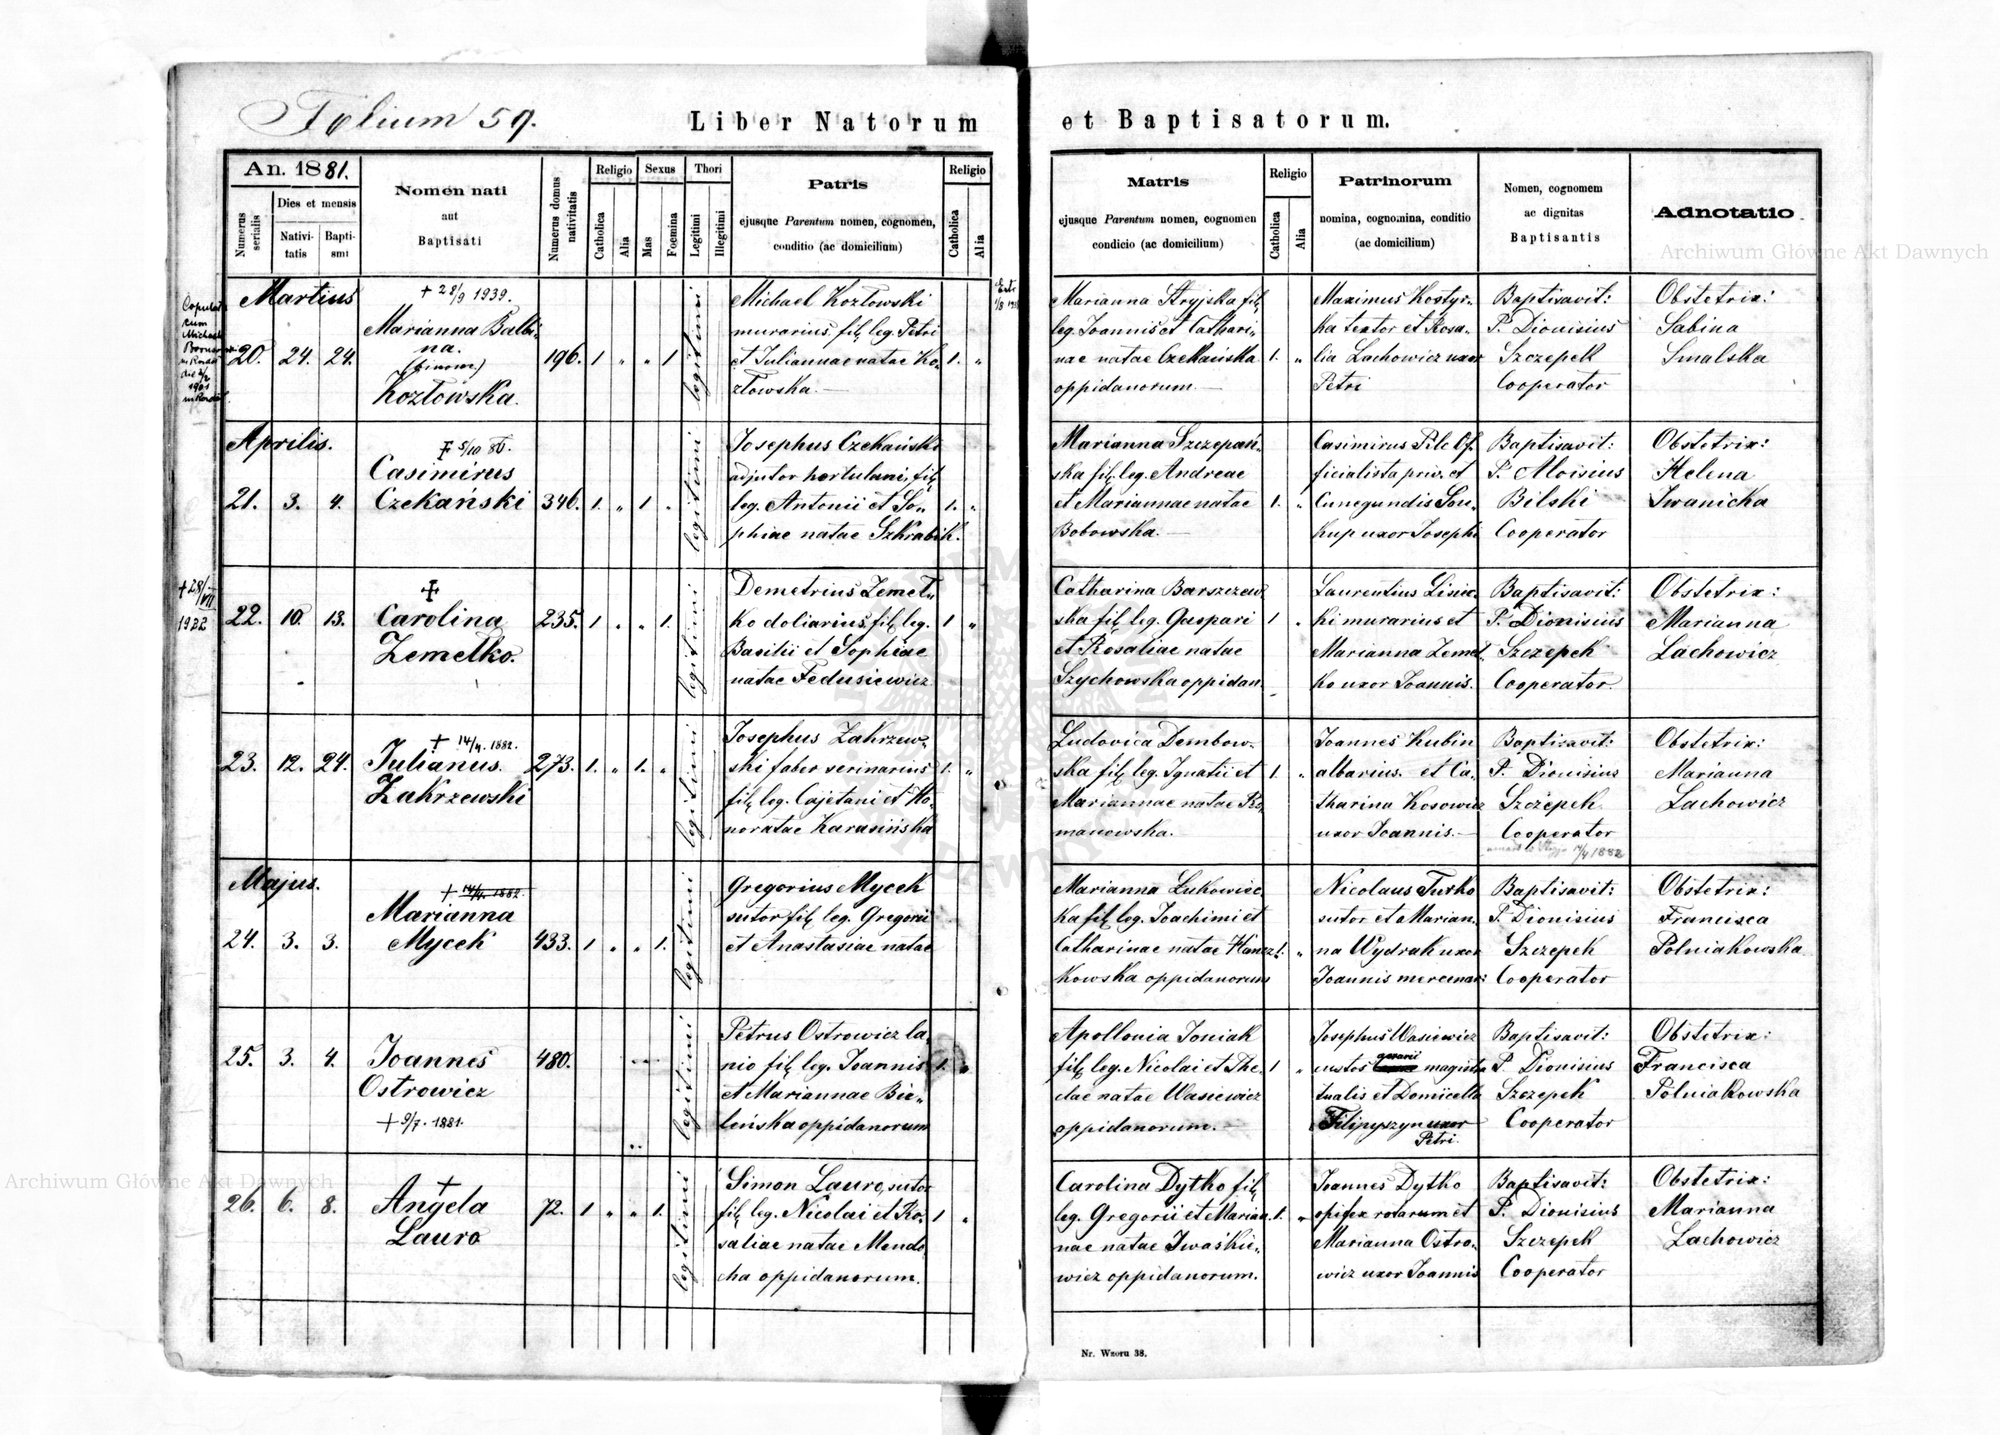 Folium 59.
Liber Natorum et Baptisatorum.
An. 1881.
Numerus serialis
Dies et mensis
Nativi-
tatis
Bapti-
smi
Nomen nati
aut
Baptisati
Numerus domus nativitatis
Religio
Catholica
Alia
Sexus
Mas
Foemina
Thori
Legitimi
Illegitimi
Patris
ejusque Parentum nomen, cognomen,
conditio (ac domicilium)
Religio
Catholica
Alia
Matris
ejusque Parentum nomen, cognomen
condicio (ac domicilium)
Religio
Catholica
Alia
Patrinorum
nomina, cognomina, conditio
(ac domicilium)
Nomen, cognomen
ac dignitas
Baptisantis
Adnotatio
Martius
20. 24. 24.
+ 28/9 1939.
Marianna Balbi-
na.
Kozłowska.
196. 1 " " 1
legitimi
Michael Kozłowski
murarius, fil. leg. Petri
et Juliannae natae Ko-
złowska.
1. "
Marianna Stryjska fil.
leg. Joannis et Cathari-
nae natae Czekańska
oppidanorum.
1. "
Maximus Kostyr-
ka textor et Rosa-
lia Lachowicz uxor
Petri
Baptisavit:
P. Dionisius
Szczepek
Cooperator
Obstetrix:
Sabina
Smalska
Aprilis.
21. 3. 4.
+ 5/10 86.
Casimirus
Czekański
346. 1. " 1 "
legitimi
Josephus Czekański
adjutor hortulani, fil.
leg. Antonii et So-
phiae natae Szkrabik.
1. "
Marianna Szczepań-
ska fil. leg. Andreae
et Mariannae natae
Bobowska.
1. "
Casimirus Pilc Of-
ficialista priv. et
Cunegundis Sou-
kup uxor Josephi
Baptisavit:
P. Aloisius
Bilski
Cooperator
Obstetrix:
Helena
Iwanicka
+ 28/VII
1922
22. 10. 13.
+
Carolina
Zemełko.
235. 1 " " 1.
legitimi
Demetrius Zemeł-
ko doliarius, fil. leg.
Basilii et Sophiae
natae Fedusiewicz
1 "
Catharina Barszczew-
ska fil. leg. Gaspari
et Rosaliae natae
Szychowska oppidan.
1 "
Laurentius Lisic-
ki murarius et
Marianna Zemeł-
ko uxor Joannis.
Baptisavit:
P. Dionisius
Szczepek
Cooperator.
Obstetrix:
Marianna
Lachowicz
23. 12. 24.
+ 14/4. 1882.
Julianus.
Zakrzewski
273. 1. " 1. "
legitimi
Josephus Zakrzew-
ski faber serinarius
fil. leg. Cajetani et Ho-
noratae Karasińska
1. "
Ludovica Dembow-
ska fil. leg. Ignatii et
Mariannae natae Ro-
manowska.
1. "
Joannes Kubin
albarius. et Ca-
tharina Kosowicz
uxor Joannis.
Baptisavit:
P. Dionisius
Szczepek
Cooperator
14/4 1882
Obstetrix:
Marianna
Lachowicz
Majus.
24. 3. 3.
+ 14/4. 1882.
Marianna
Mycek
433. 1 " " 1.
legitimi
Gregorius Mycek
sutor fil. leg. Gregorii
et Anastasiae natae
Marianna Łukowiec-
ka fil. leg. Joachimi et
Catharinae natae Hancz-
kowska oppidanorum
1. "
Nicolaus Turko
sutor et Marian-
na Wydrak uxor
Joannis mercenar:
Baptisavit:
P. Dionisius
Szczepek
Cooperator
Obstetrix:
Francisca
Polniakowska
25. 3. 4.
Joannes
Ostrowicz
+ 9/7. 1881.
480.
legitimi
Petrus Ostrowicz la-
nio fil. leg. Joannis
et Mariannae Bie-
leńska oppidanorum
1. "
Apollonia Joniak
fil. leg. Nicolai et The-
clae natae Wasiewicz
oppidanorum.
1 "
Josephus Wasiewicz
custos magistra-
tualis et Domicella
Filipyszyn uxor
Petri.
Baptisavit:
P. Dionisius
Szczepek
Cooperator
Obstetrix:
Francisca
Polniakowska
26. 6. 8.
+
Angela
Lauro
72. 1 " " 1.
legitimi
Simon Lauro, sutor
fil. leg. Nicolai et Ro-
saliae natae Mendo-
cha oppidanorum.
1 "
Carolina Dytko fil.
leg. Gregorii et Marian-
nae natae Iwaśkie-
wicz oppidanorum.
1. "
Joannes Dytko
opifex rotarum et
Marianna Ostro-
wicz uxor Joannis
Baptisavit:
P. Dionisius
Szczepek
Cooperator
Obstetrix:
Marianna
Lachowicz
Nr. Wzoru 38.
Archiwum Główne Akt Dawnych
Archiwum Główne Akt Dawnych